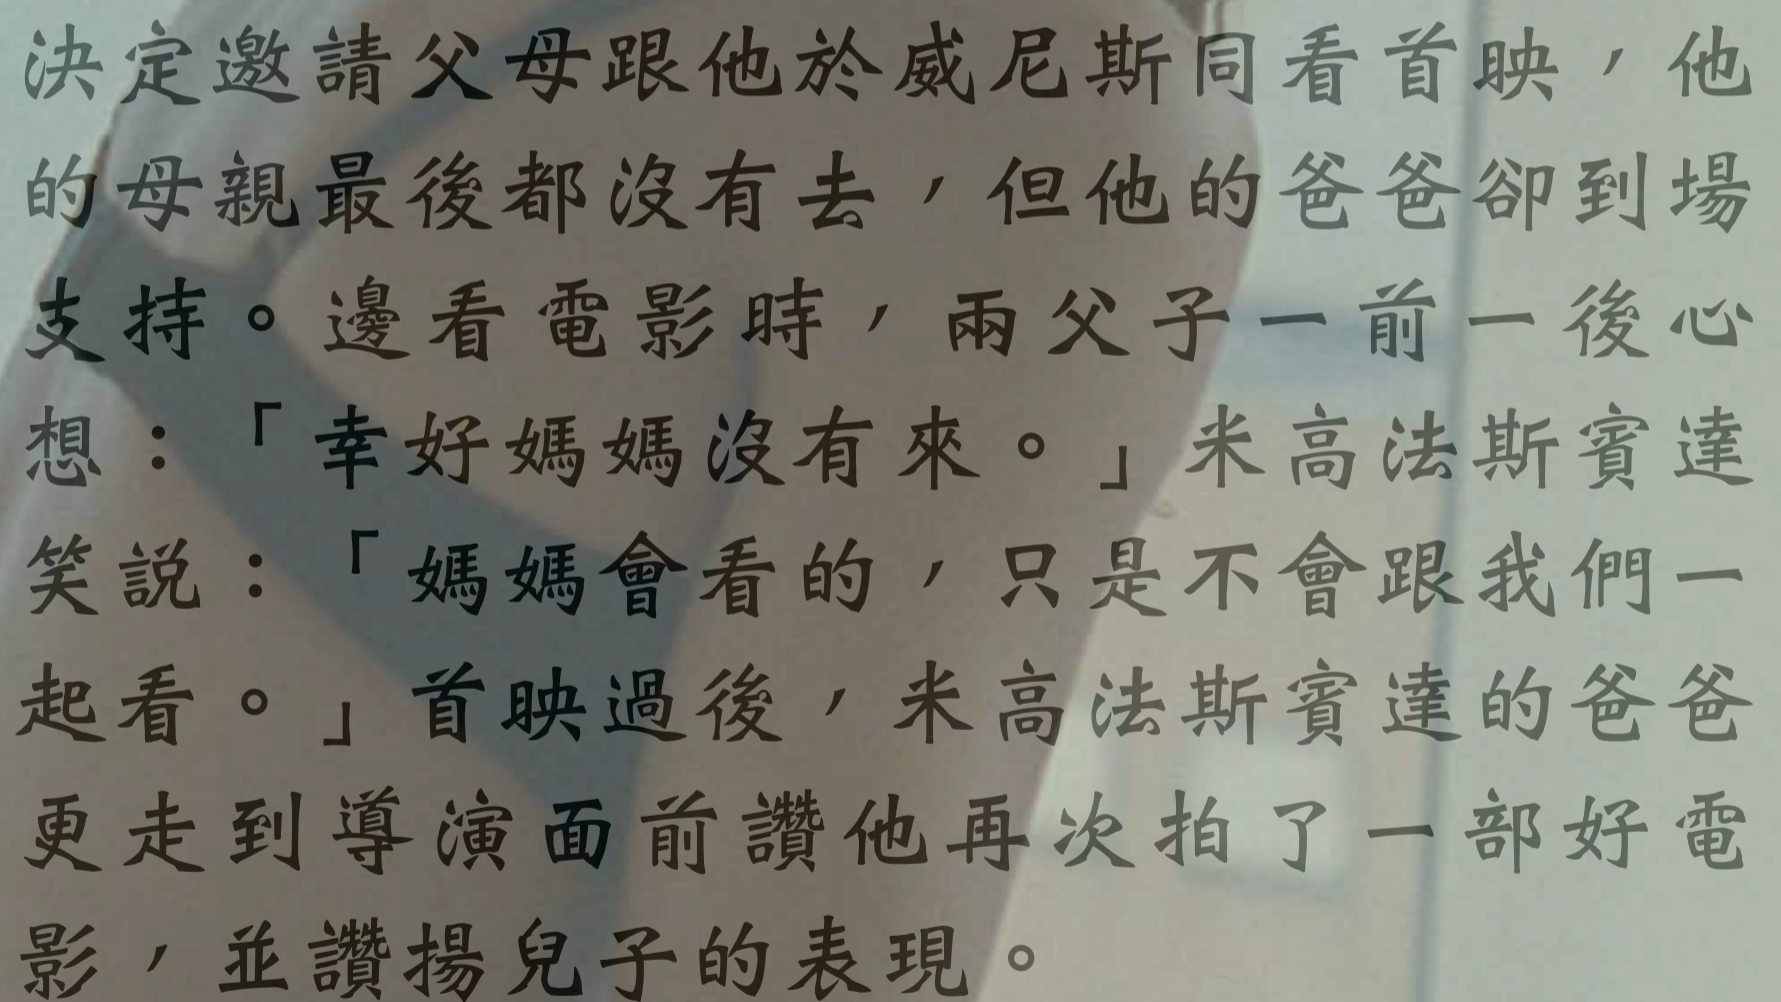 決定邀請父母跟他於威尼斯同看首映，他
的母親最後都沒有去，但他的爸爸卻到場
支持。邊看電影時，兩父子一前一後心
想：「幸好媽媽沒有來。」米高法斯賓達
笑説：「媽媽會看的，只是不會跟我們一
起看。」首映過後，米高法斯賓達的爸爸
更走到導演面前讚他再次拍了一部好電
影，並讚揚兒子的表現。